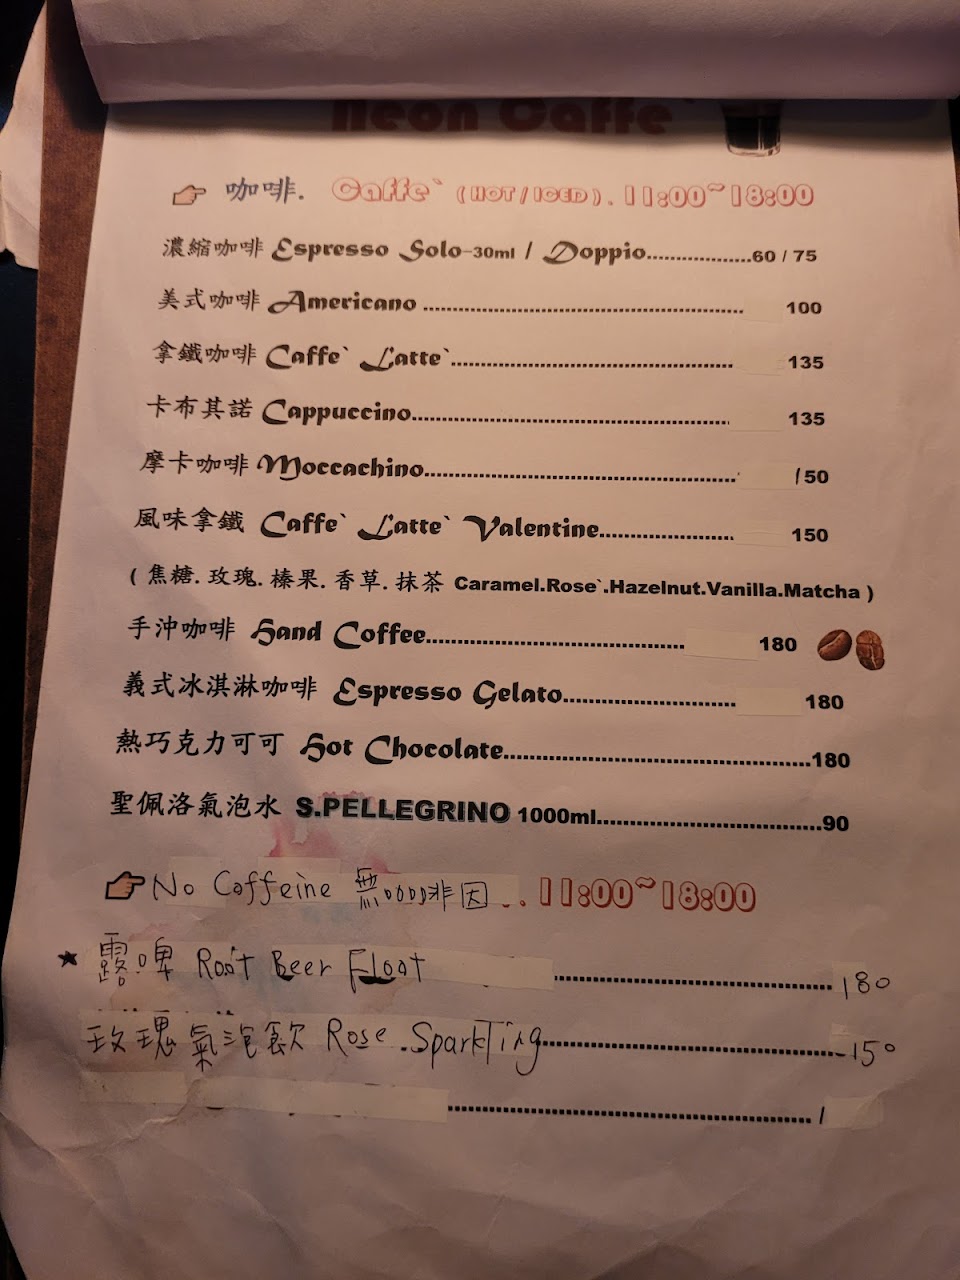 Neon Caffe`
咖啡. Caffe` (HOT/ICED). 11:00~18:00
濃縮咖啡 Espresso Solo-30ml / Doppio..................60 / 75
美式咖啡 Americano ........................................................ 100
拿鐵咖啡 Caffe` Latte`.................................................. 135
卡布其諾 Cappuccino........................................................ 135
摩卡咖啡 Moccachino....................................................... 150
風味拿鐵 Caffe` Latte` Valentine........................ 150
( 焦糖. 玫瑰. 榛果. 香草. 抹茶 Caramel.Rose`.Hazelnut.Vanilla.Matcha )
手沖咖啡 Hand Coffee.............................................. 180
義式冰淇淋咖啡 Espresso Gelato.............................. 180
熱巧克力可可 Hot Chocolate......................................................180
聖佩洛氣泡水 S.PELLEGRINO 1000ml.......................................90
No Caffeine 無咖啡因... 11:00~18:00
★ 露啤 Root Beer Float ................................................180
玫瑰氣泡飲 Rose Sparkling....................................................150